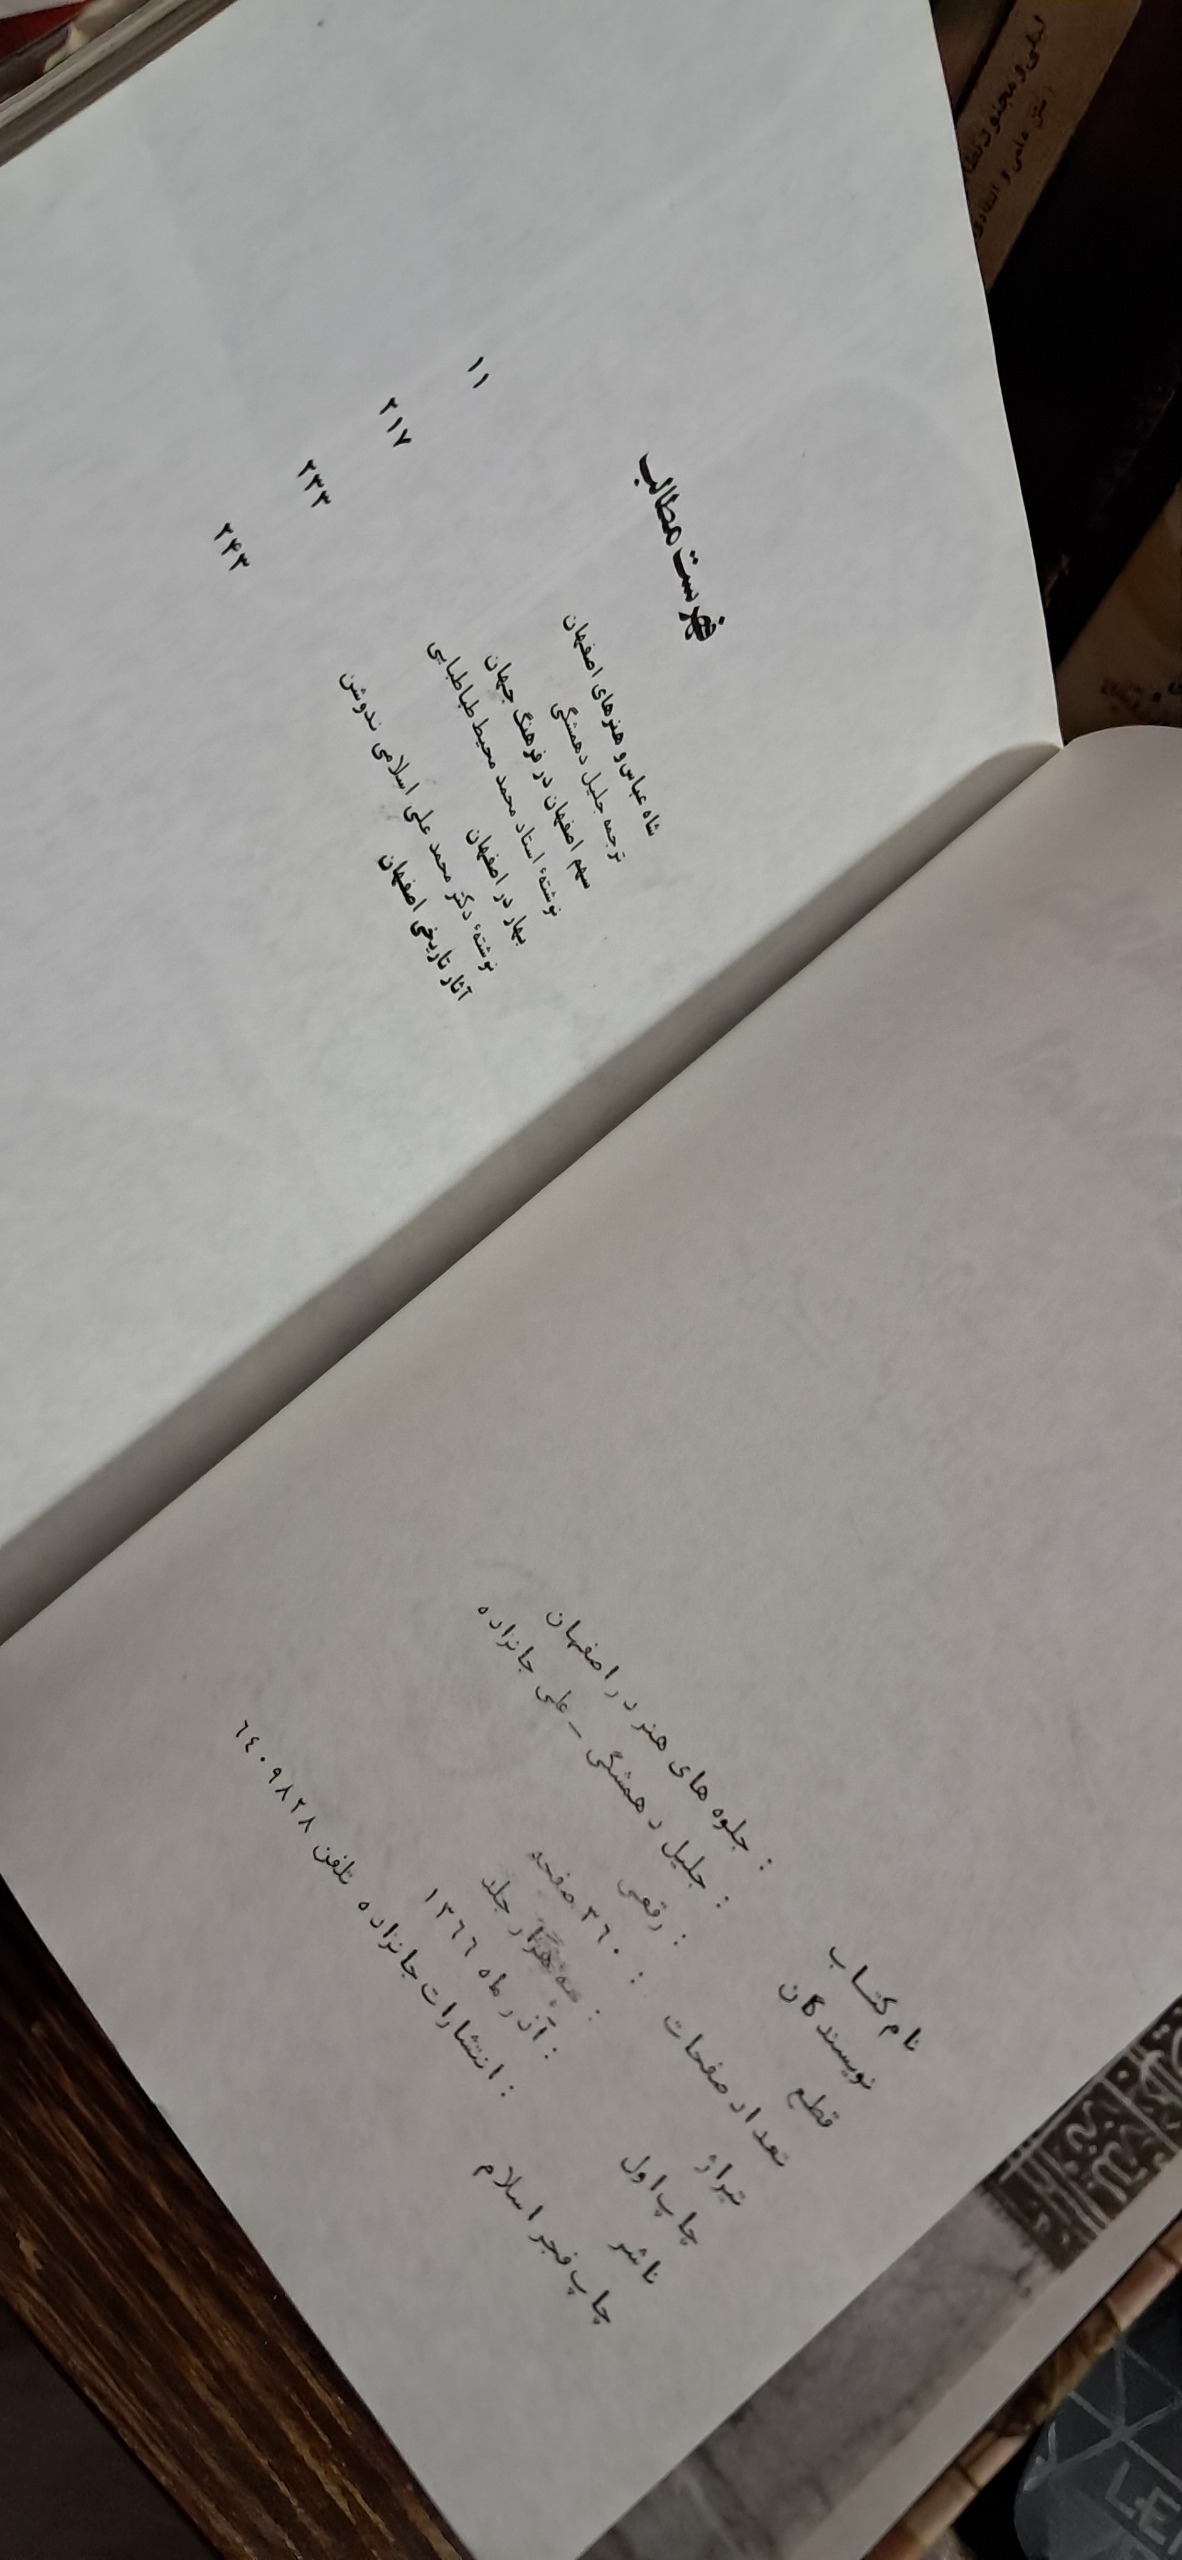 نام کتاب : جلوه های هنر در اصفهان
نویسندگان : جلیل دهمشگی – علی جانزاده
قطع : رقعی
تعداد صفحات : ۳٦۰ صفحه
تیراژ : هزار جلد
چاپ اول : آذر ماه ۱۳٦٦
ناشر : انتشارات جانزاده تلفن ٦٤۰۹۸۲۸
چاپ فجر اسلام
فهرست مطالب
شاه عباس و هنرهای اصفهان
ترجمه جلیل دهمشگی ۱۱
سهم اصفهان در فرهنگ جهان
نوشتهٔ استاد محمد محیط طباطبایی ۲۱۷
بهار در اصفهان
نوشتهٔ دکتر محمد علی اسلامی ندوشن ۲۳۳
آثار تاریخی اصفهان ۲۴۳
لیلی و مجنون
متن علمی و انتقادی